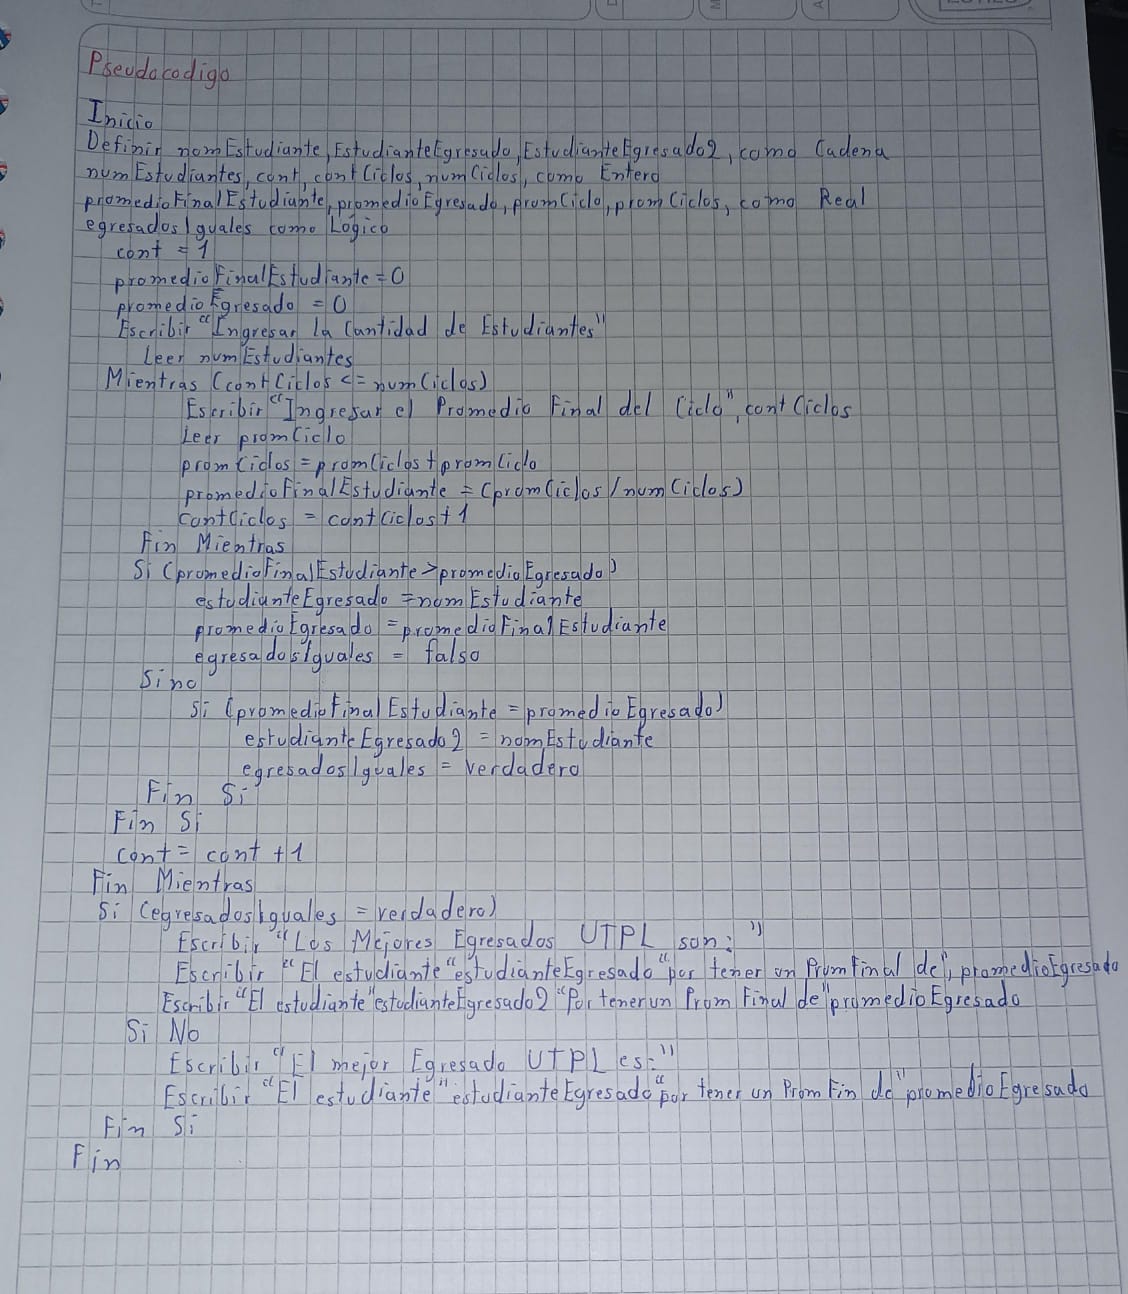 Pseudocodigo
Inicio
Definir nomEstudiante, EstudianteEgresado, EstudianteEgresado2, como Cadena
numEstudiantes, cont, contCiclos, numCiclos, como Entero
promedioFinalEstudiante, promedioEgresado, promCiclo, promCiclos, como Real
egresadosIguales como Lógico
cont = 1
promedioFinalEstudiante = 0
promedioEgresado = 0
Escribir "Ingresar la Cantidad de Estudiantes"
Leer numEstudiantes
Mientras (contCiclos <= numCiclos)
Escribir "Ingresar el Promedio Final del Ciclo", contCiclos
Leer promCiclo
promCiclos = promCiclos + promCiclo
promedioFinalEstudiante = (promCiclos / numCiclos)
contCiclos = contCiclos + 1
Fin Mientras
Si (promedioFinalEstudiante > promedioEgresado)
estudianteEgresado = nomEstudiante
promedioEgresado = promedioFinalEstudiante
egresadosIguales = falso
Sino
Si (promedioFinalEstudiante = promedioEgresado)
estudianteEgresado2 = nomEstudiante
egresadosIguales = verdadero
Fin Si
Fin Si
cont = cont + 1
Fin Mientras
Si (egresadosIguales = verdadero)
Escribir "Los Mejores Egresados UTPL son: "
Escribir "El estudiante" estudianteEgresado "por tener un Prom Final de", promedioEgresado
Escribir "El estudiante" estudianteEgresado2 "Por tener un Prom Final de" promedioEgresado
Si No
Escribir "El mejor Egresado UTPL es: "
Escribir "El estudiante" estudianteEgresado "por tener un Prom Fin de" promedioEgresado
Fin Si
Fin